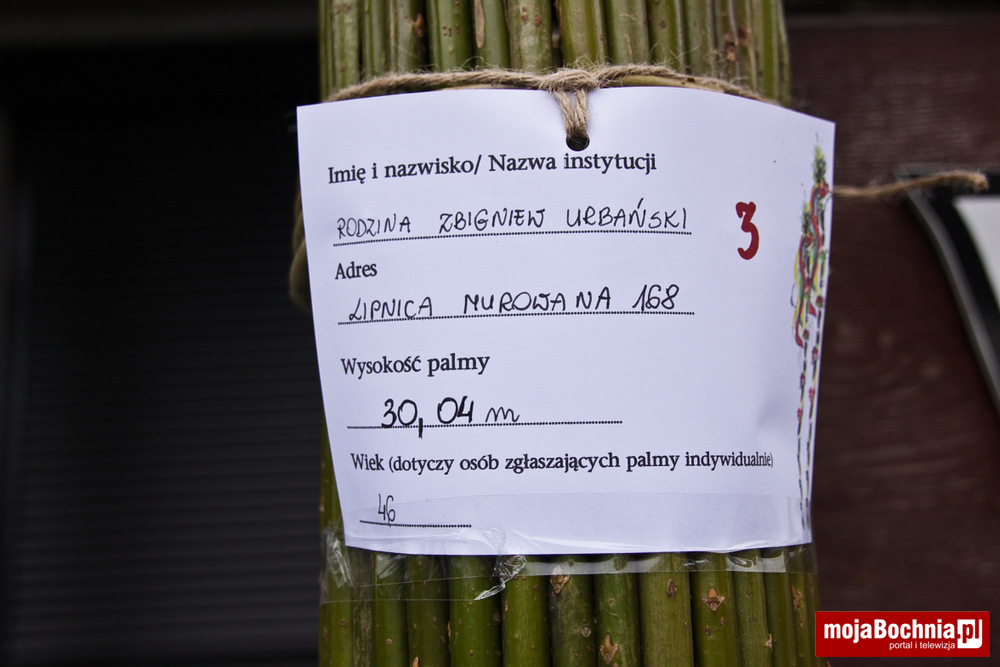 Imię i nazwisko/ Nazwa instytucji
RODZINA ZBIGNIEW URBAŃSKI
3
Adres
LIPNICA MUROWANA 168
Wysokość palmy
30,04 m
Wiek (dotyczy osób zgłaszających palmy indywidualnie)
46
mojaBochnia.pl
portal i telewizja